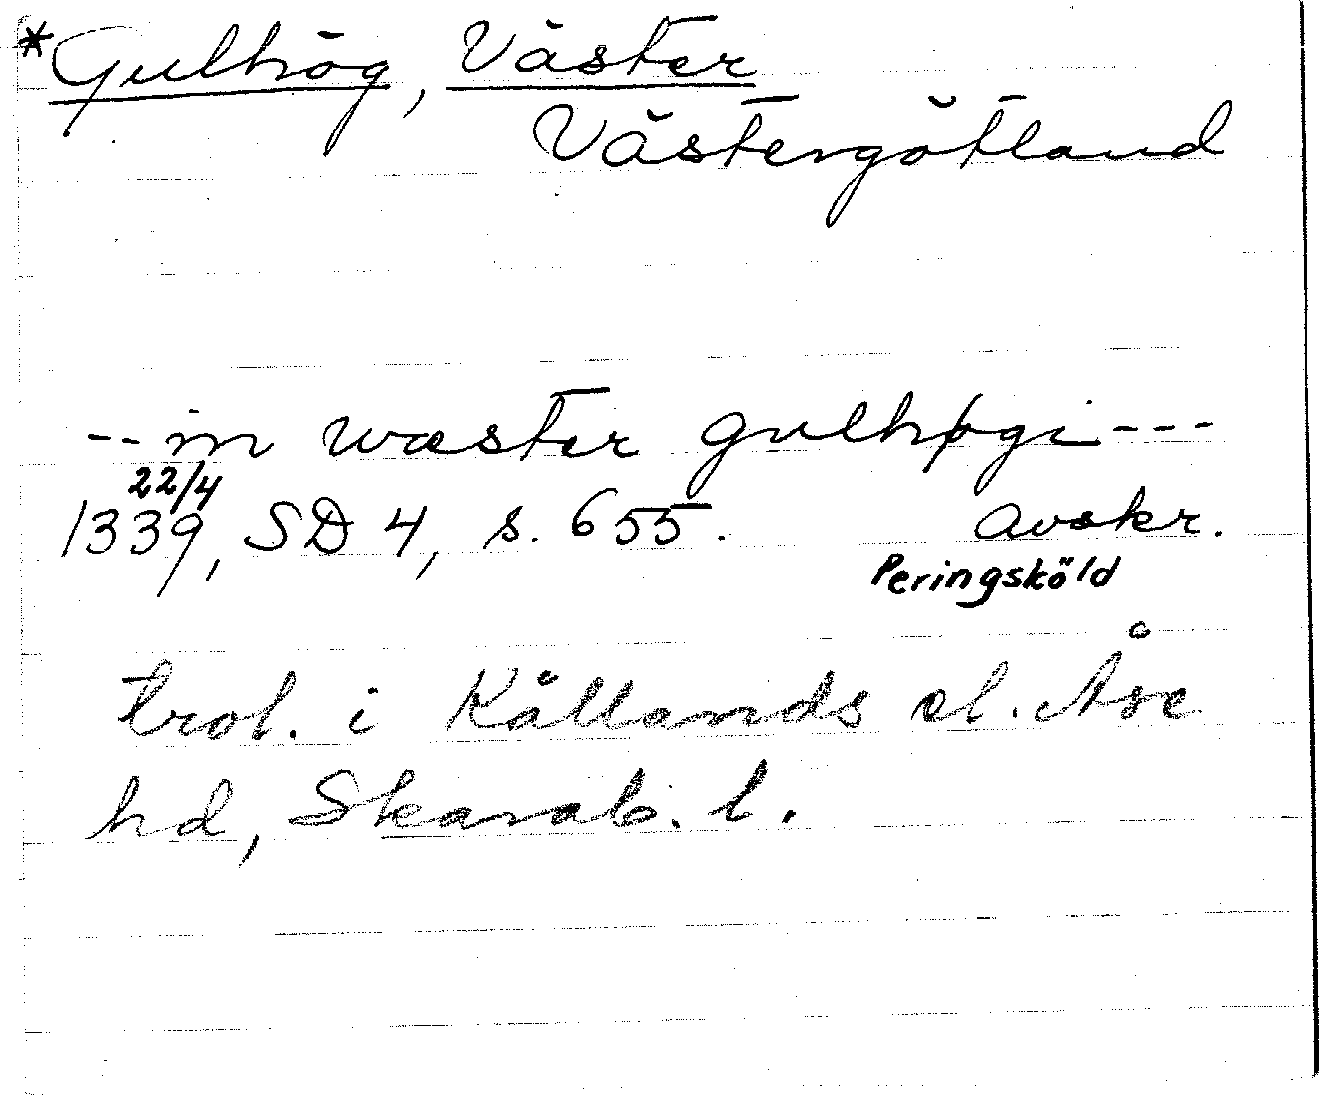 *Gulhög, Väster
Västergötland
-- in wæster gulhøgi ---
22/4
1339, SD 4, s. 655. avskr.
Peringsköld
trol. i Kållands el. Åse
hd, Skarab. l.